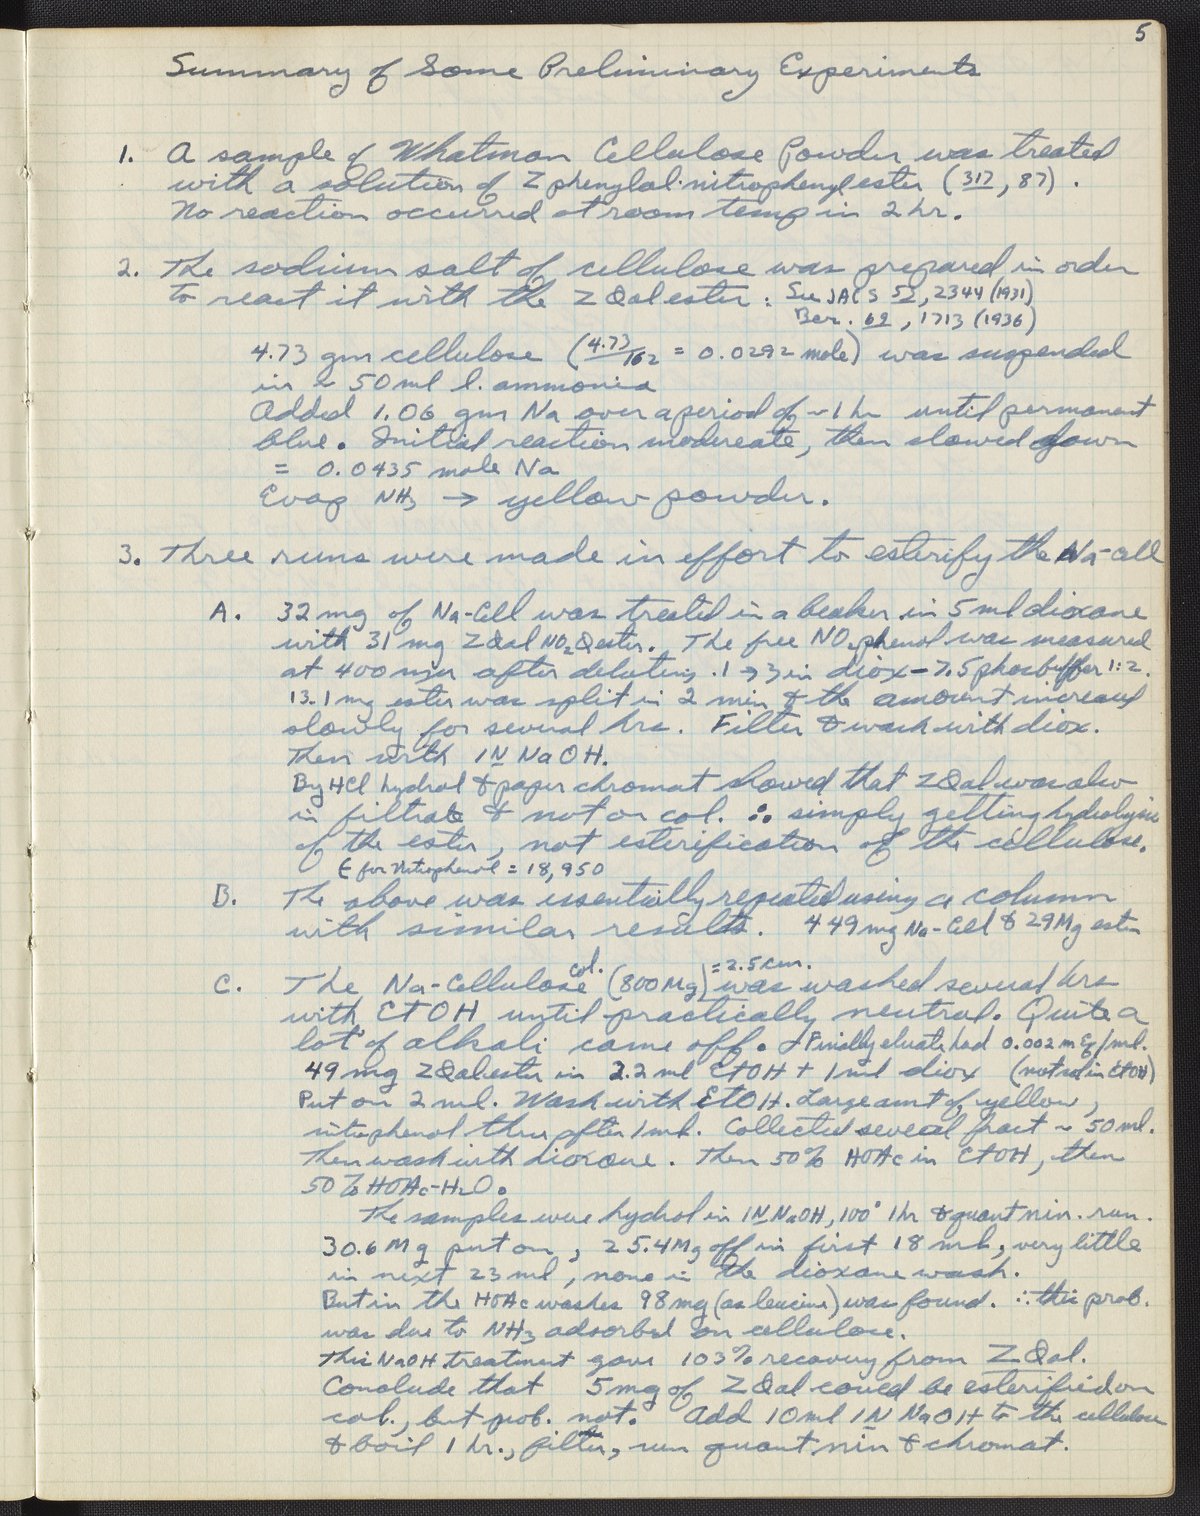 5
Summary of Some Preliminary Experiments
1. A sample of Whatman Cellulose Powder was treated
with a solution of Z phenylal. nitrophenyl ester (317, 87).
No reaction occurred at room temp in 2 hr.
2. The sodium salt of cellulose was prepared in order
to react it with the Z Φal ester : See JACS 53, 2344 (1931)
Ber. 69, 1713 (1936)
4.73 gm cellulose (4.73/162 = 0.0292 mole) was suspended
in ~ 50 ml l. ammonia
Added 1.06 gm Na over a period of ~1 hr until permanent
blue. Initial reaction moderate, then slowed down
= 0.0435 mole Na
Evap NH3 → yellow powder.
3. Three runs were made in effort to esterify the Na-cell
A. 32 mg of Na-Cell was treated in a beaker in 5 ml dioxane
with 31 mg ZΦal NO2Φester. The free NO2phenol was measured
at 400 mμ after diluting .1 → 3 in diox-7.5 phosbuffer 1:2.
13.1 mg ester was split in 2 min & the amount increased
slowly for several hrs. Filter & wash with diox.
Then with 1N NaOH.
By HCl hydrol & paper chromat showed that ZΦal was also
in filtrate & not on col. ∴ simply getting hydrolysis
of the ester, not esterification of the cellulose.
ε for nitrophenol = 18,950
B. The above was essentially repeated using a column
with similar results. 449 mg Na-Cell & 29 Mg ester
C. The Na-Cellulose col. (800 Mg) = 2.5 cm. was washed several hrs
with EtOH until practically neutral. Quite a
lot of alkali came off. Finally eluate had 0.002 mEq/ml.
49 mg ZΦal ester in 2.2 ml EtOH + 1 ml diox (not sol in EtOH)
Put on 2 ml. Wash with EtOH. Large amt of yellow,
nitrophenol thru after 1 ml. Collected several fract ~ 50 ml.
Then wash with dioxane. Then 50% HOAc in EtOH, then
50% HOAc-H2O.
The samples were hydrol in 1N NaOH, 100° 1 hr & quant nin. run.
30.6 Mg put on, 25.4 Mg off in first 18 ml, very little
in next 23 ml, none in the dioxane wash.
But in the HOAc washes 98 mg (as leucine) was found. ∴ this prob.
was due to NH3 adsorbed on cellulose.
This NaOH treatment gave 103% recovery from ZΦal.
Conclude that 5 mg of ZΦal could be esterified on
col., but prob. not. Add 10 ml 1N NaOH to the cellulose
& boil 1 hr., filter, run quant nin & chromat.